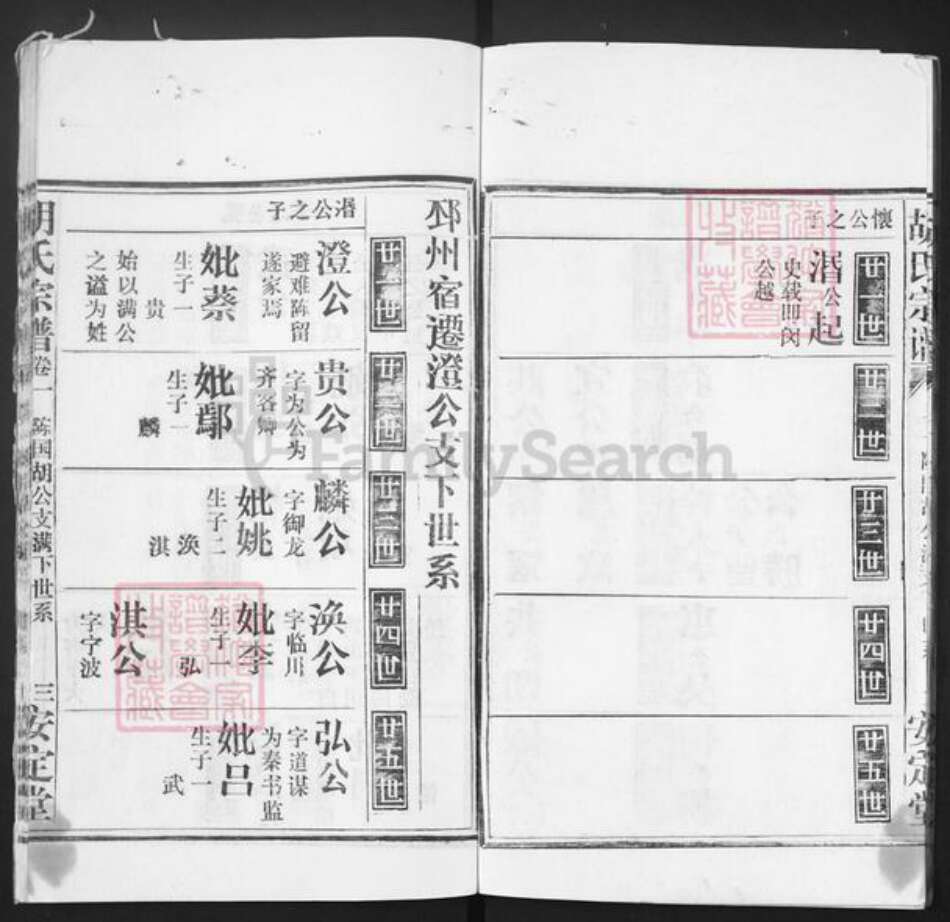 胡氏宗谱
安定堂
懷公之子
廿一世
湣公起
史载即闵
公越
廿二世
廿三世
廿四世
廿五世
邳州宿遷澄公支下世系
湣公之子
廿一世
澄公
避难陈留
遂家焉
妣蔡
生子一
贵
始以满公
之谥为姓
廿二世
贵公
字为公为
齐客卿
妣鄢
生子一
麟
廿三世
麟公
字御龙
妣姚
生子二
涣
淇
廿四世
涣公
字临川
妣李
生子一
弘
淇公
字宁波
廿五世
弘公
字道谋
为秦书监
妣吕
生子一
武
胡氏宗谱卷一
陈国胡公支满下世系
三
安定堂
FamilySearch